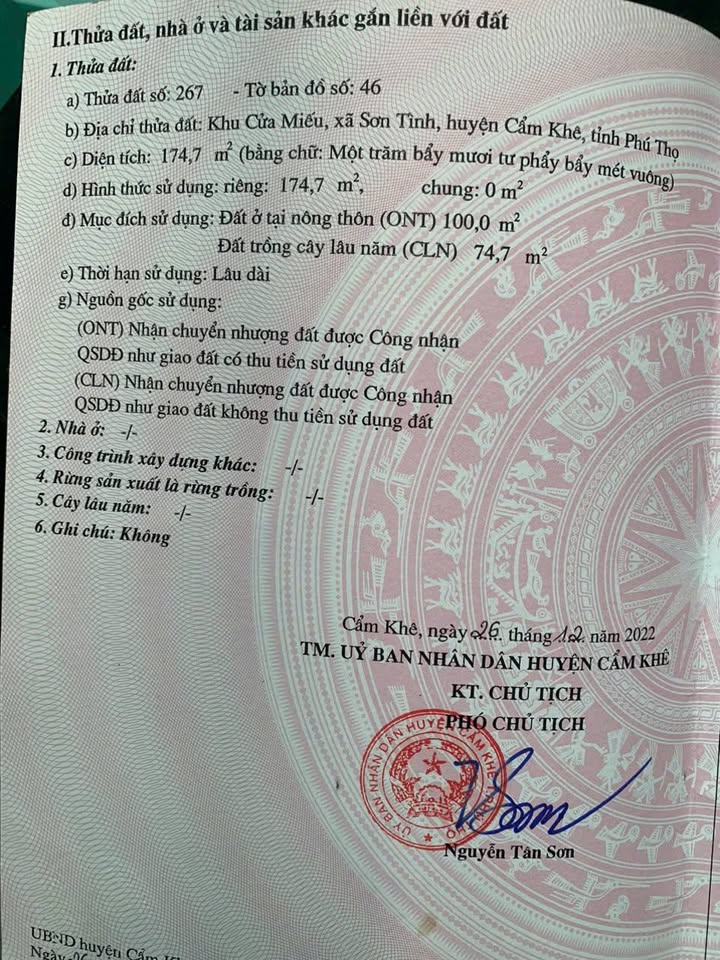 II.Thửa đất, nhà ở và tài sản khác gắn liền với đất
1. Thửa đất:
a) Thửa đất số: 267 - Tờ bản đồ số: 46
b) Địa chỉ thửa đất: Khu Cửa Miếu, xã Sơn Tình, huyện Cẩm Khê, tỉnh Phú Thọ
c) Diện tích: 174,7 m² (bằng chữ: Một trăm bẩy mươi tư phẩy bẩy mét vuông)
d) Hình thức sử dụng: riêng: 174,7 m², chung: 0 m²
đ) Mục đích sử dụng: Đất ở tại nông thôn (ONT) 100,0 m²
Đất trồng cây lâu năm (CLN) 74,7 m²
e) Thời hạn sử dụng: Lâu dài
g) Nguồn gốc sử dụng:
(ONT) Nhận chuyển nhượng đất được Công nhận
QSDĐ như giao đất có thu tiền sử dụng đất
(CLN) Nhận chuyển nhượng đất được Công nhận
QSDĐ như giao đất không thu tiền sử dụng đất
2. Nhà ở: -/-
3. Công trình xây dựng khác: -/-
4. Rừng sản xuất là rừng trồng: -/-
5. Cây lâu năm: -/-
6. Ghi chú: Không
Cẩm Khê, ngày 26. tháng 12. năm 2022
TM. UỶ BAN NHÂN DÂN HUYỆN CẨM KHÊ
KT. CHỦ TỊCH
PHÓ CHỦ TỊCH
ỦY BAN NHÂN DÂN HUYỆN CẨM KHÊ
Nguyễn Tân Sơn
UBND huyện Cẩm
Ngày 26